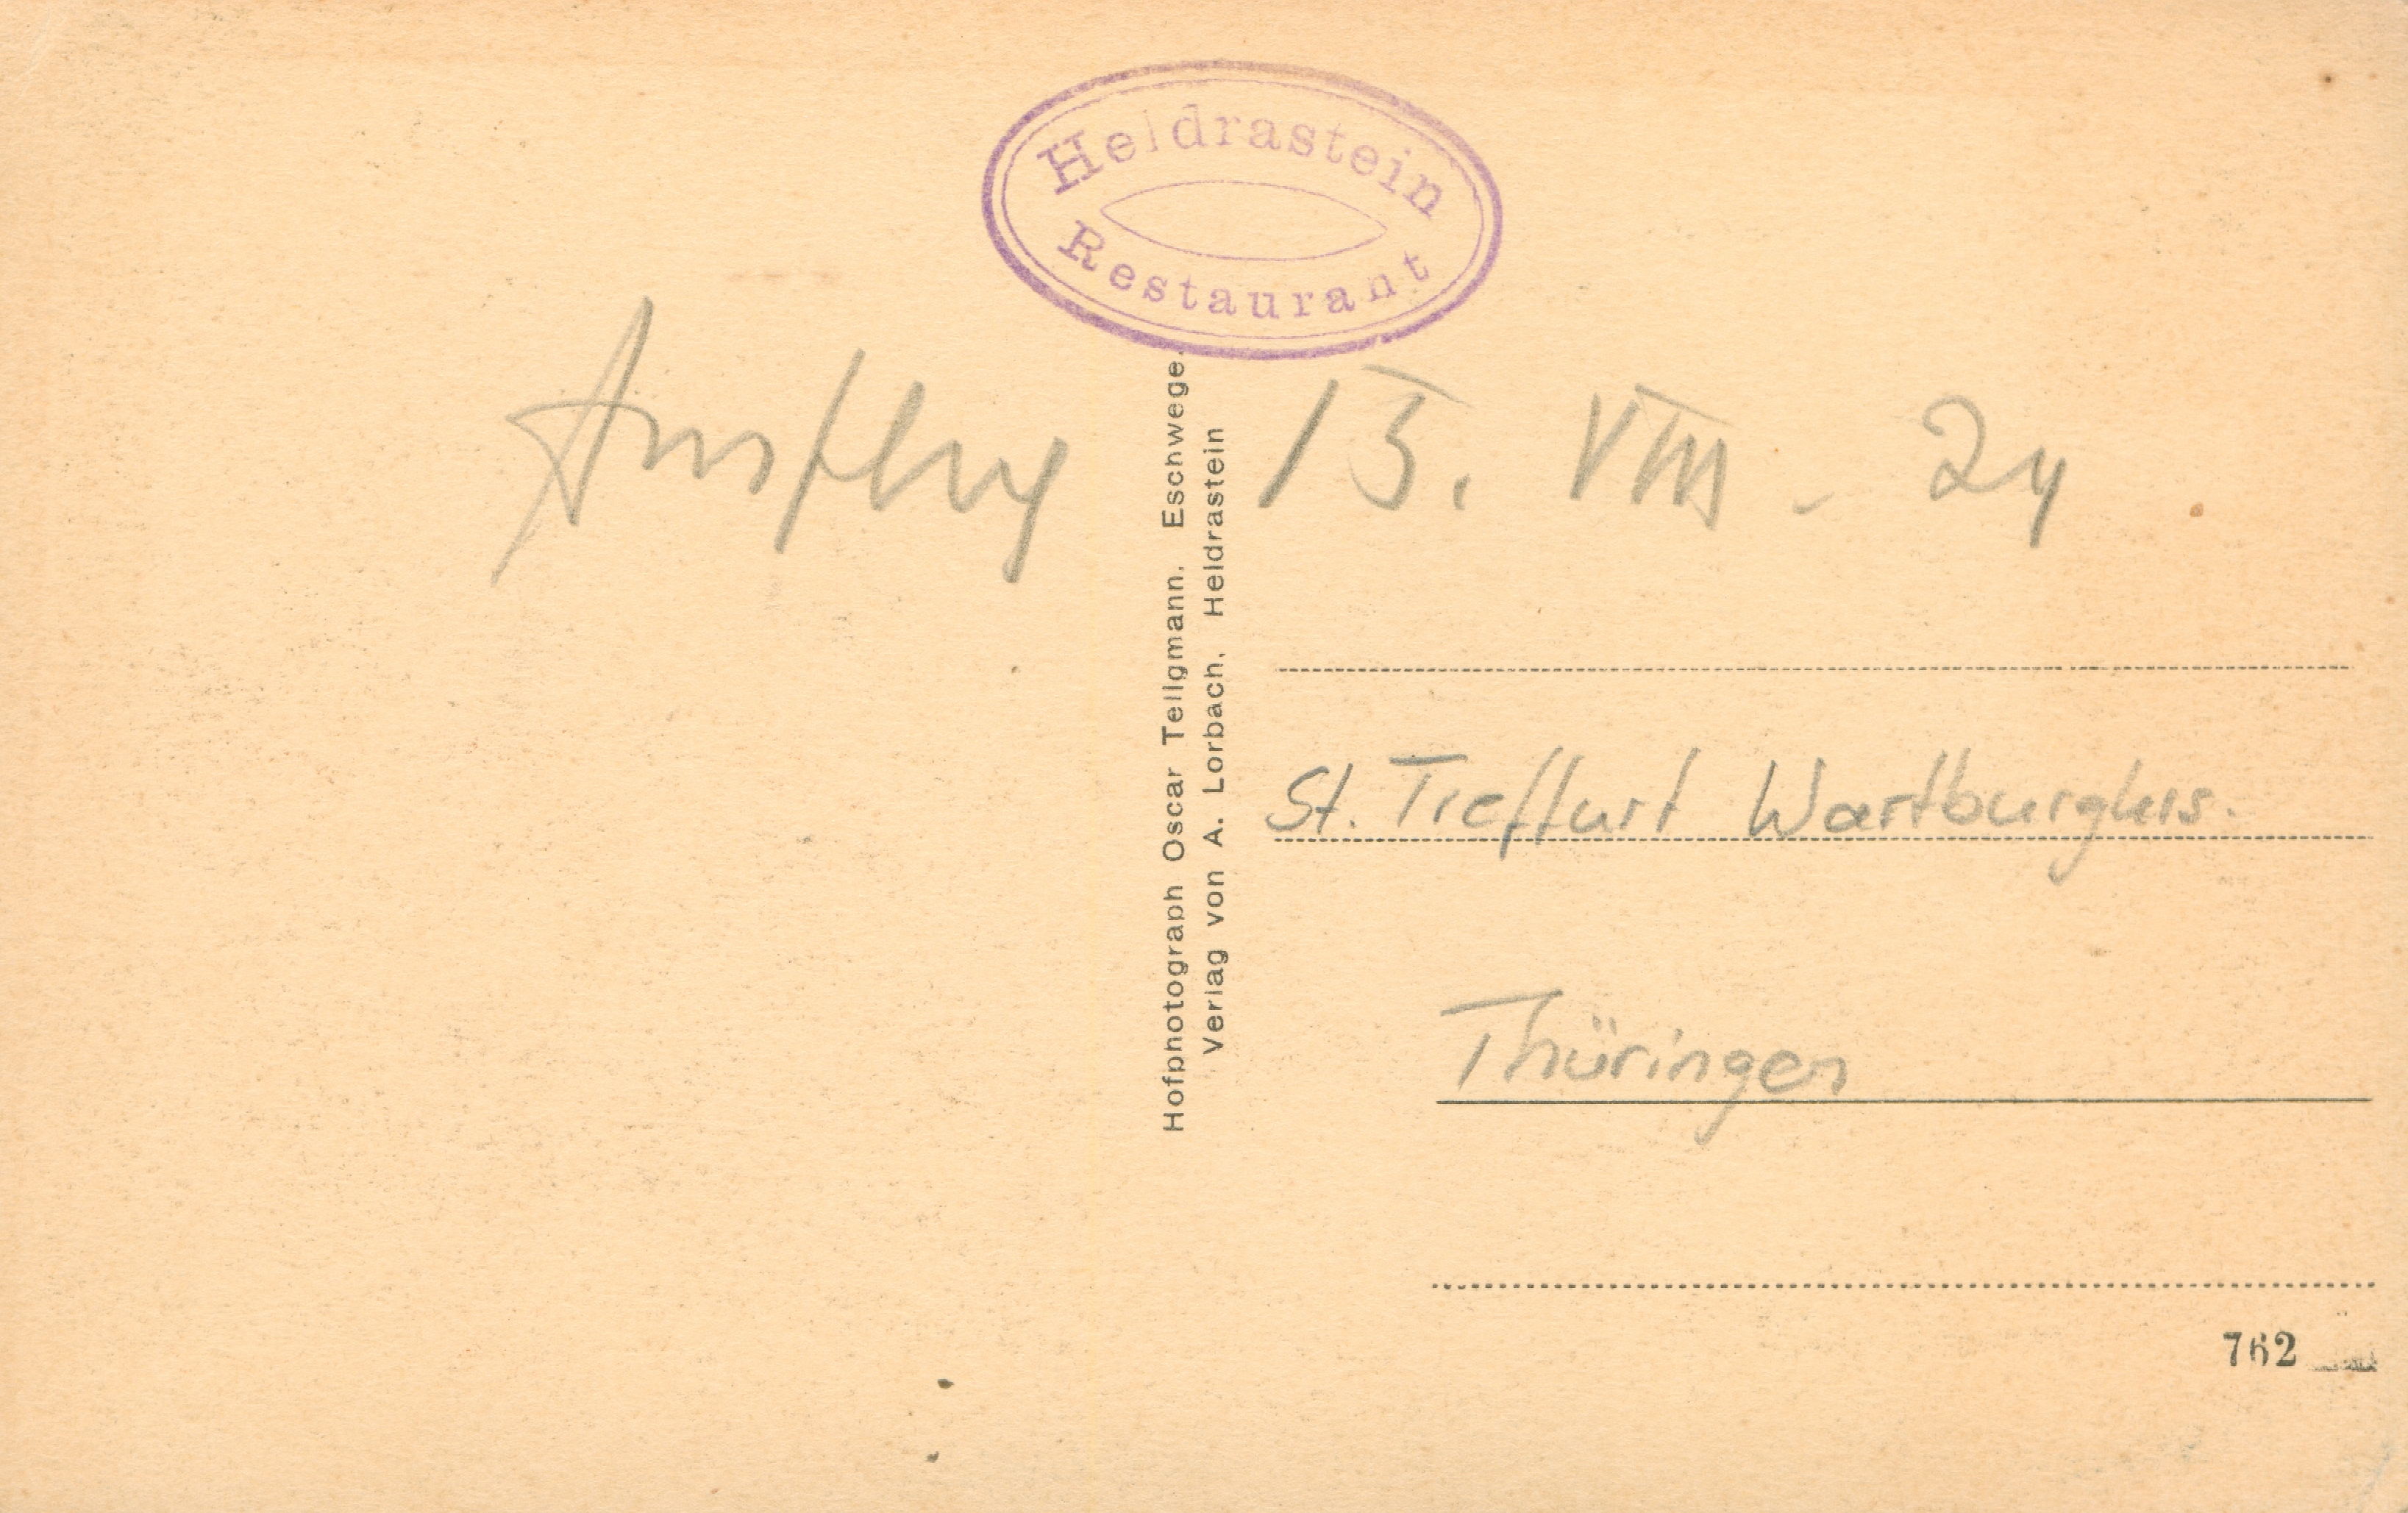 Heldrastein
Restaurant
Ausflug 13. VIII. 24
Hofphotograph Oscar Tellgmann. Eschwege.
Verlag von A. Lorbach. Heldrastein
St. Treffurt Wartburgkrs.
Thüringen
762